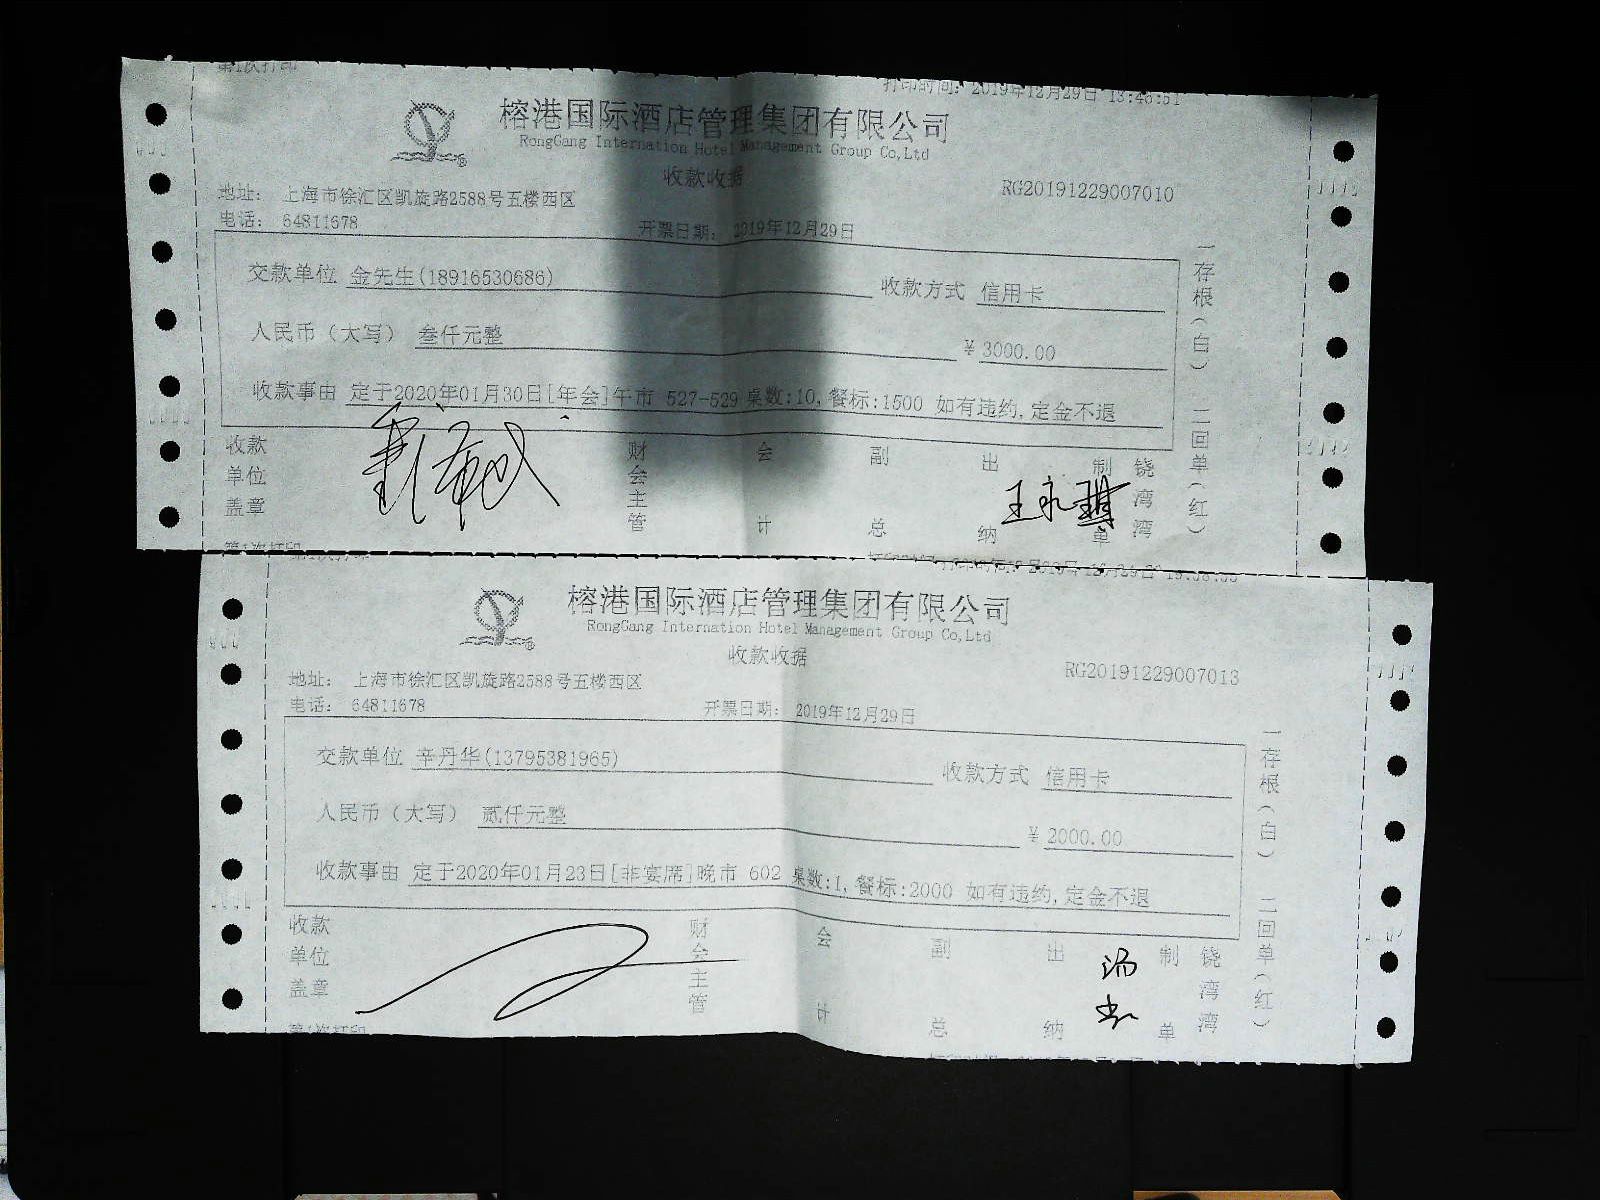 第1次打印
打印时间: 2019年12月29日 13:46:51
榕港国际酒店管理集团有限公司
RongGang Internation Hotel Management Group Co,Ltd
收款收据
RG20191229007010
地址: 上海市徐汇区凯旋路2588号五楼西区
电话: 64811678
开票日期: 2019年12月29日
交款单位 金先生(18916530686) 收款方式 信用卡
人民币(大写) 叁仟元整 ¥ 3000.00
收款事由 定于2020年01月30日[年会]午市 527-529 桌数:10,餐标:1500 如有违约,定金不退
收款单位盖章 财会主管 会计 副总 出纳 制单 饶湾湾
王永琪
一存根(白) 二回单(红)
第1次打印
榕港国际酒店管理集团有限公司
RongGang Internation Hotel Management Group Co,Ltd
收款收据
RG20191229007013
地址: 上海市徐汇区凯旋路2588号五楼西区
电话: 64811678
开票日期: 2019年12月29日
交款单位 辛丹华(13795381965) 收款方式 信用卡
人民币(大写) 贰仟元整 ¥ 2000.00
收款事由 定于2020年01月23日[非宴席]晚市 602 桌数:1,餐标:2000 如有违约,定金不退
收款单位盖章 财会主管 会计 副总 出纳 制单 饶湾湾
一存根(白) 二回单(红)
第1次打印